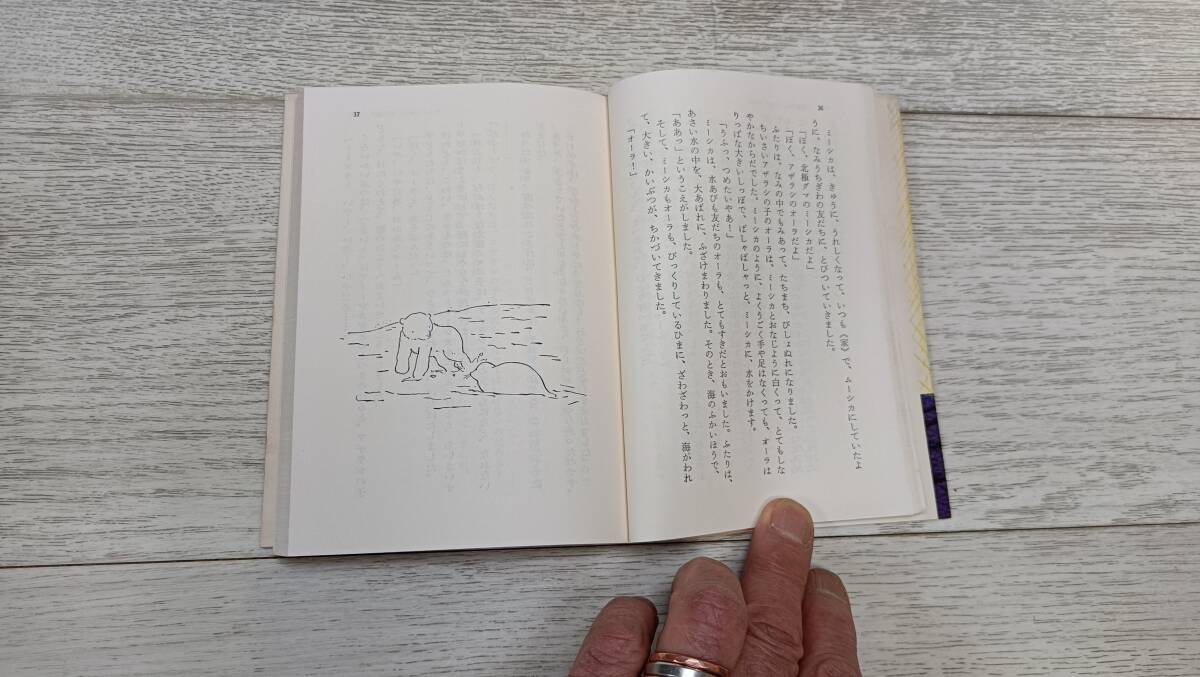 36
ミーシカは、きゅうに、うれしくなって、いつも《家》で、ムーシカにしていたよ
うに、なみうちぎわの友だちに、とびついていきました。
「ぼく、北極グマのミーシカだよ」
「ぼく、アザラシのオーラだよ」
ふたりは、なみの中でもみあって、たちまち、びしょぬれになりました。
ちいさいアザラシの子のオーラは、ミーシカとおなじように白くって、とてもしな
やかなからだでした。ミーシカのように、よくうごく手や足はなくっても、オーラは
りっぱな大きいしっぽで、ばしゃばしゃっと、ミーシカに、水をかけます。
「うふっ、つめたいやあ！」
ミーシカは、水あびも友だちのオーラも、とてもすきだとおもいました。ふたりは、
あさい水の中を、大あばれに、ふざけまわりました。そのとき、海のふかいほうで、
「ああっ」というこえがしました。
そして、ミーシカもオーラも、びっくりしているひまに、ざわざわっと、海がわれ
て、大きい、かいぶつが、ちかづいてきました。
「オーラ！」
37